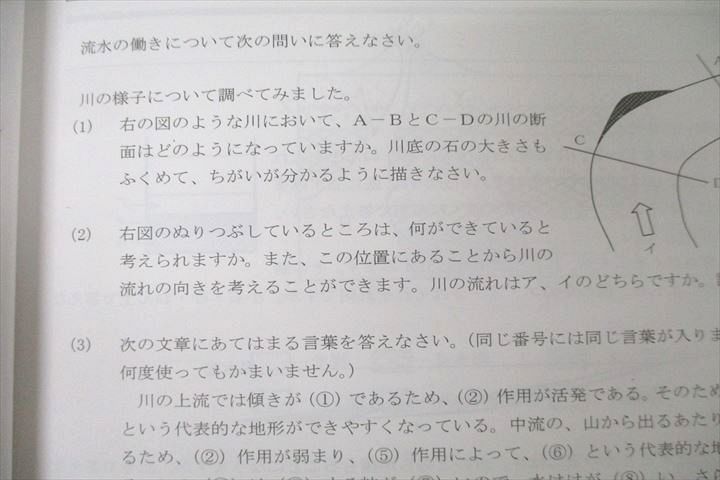 流水の働きについて次の問いに答えなさい。
川の様子について調べてみました。
(1) 右の図のような川において、A－BとC－Dの川の断
面はどのようになっていますか。川底の石の大きさも
ふくめて、ちがいが分かるように描きなさい。
C
イ
(2) 右図のぬりつぶしているところは、何ができていると
考えられますか。また、この位置にあることから川の
流れの向きを考えることができます。川の流れはア、イのどちらですか。
(3) 次の文章にあてはまる言葉を答えなさい。(同じ番号には同じ言葉が入りま
何度使ってもかまいません。)
川の上流では傾きが(①)であるため、(②)作用が活発である。そのため
という代表的な地形ができやすくなっている。中流の、山から出るあたり
るため、(②)作用が弱まり、(⑤)作用によって、(⑥)という代表的な地